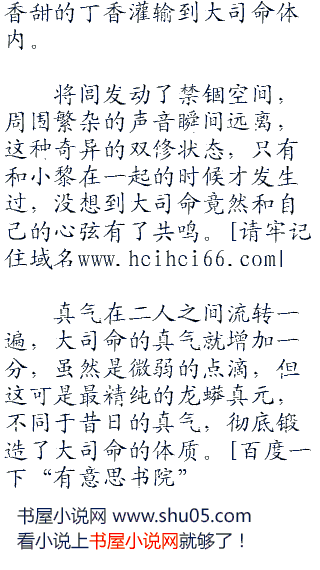 香甜的丁香灌输到大司命体
内。
将闾发动了禁锢空间，
周围繁杂的声音瞬间远离，
这种奇异的双修状态，只有
和小黎在一起的时候才发生
过，没想到大司命竟然和自
己的心弦有了共鸣。[请牢记
住域名www.hcihci66.com]
真气在二人之间流转一
遍，大司命的真气就增加一
分，虽然是微弱的点滴，但
这可是最精纯的龙蟒真元，
不同于昔日的真气，彻底锻
造了大司命的体质。[百度一
下“有意思书院”
书屋小说网 www.shu05.com
看小说上书屋小说网就够了！